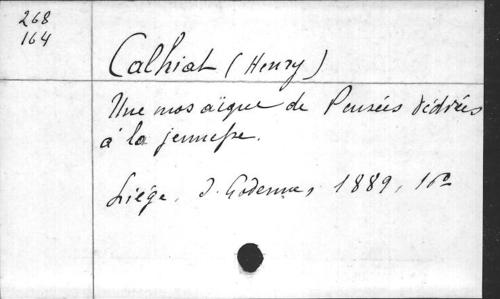 268
164
Calhiat (Henry)
Une mosaïque de Pensées dédiées
à la jeunesse.
Liége, J. Godenne, 1889, 16º